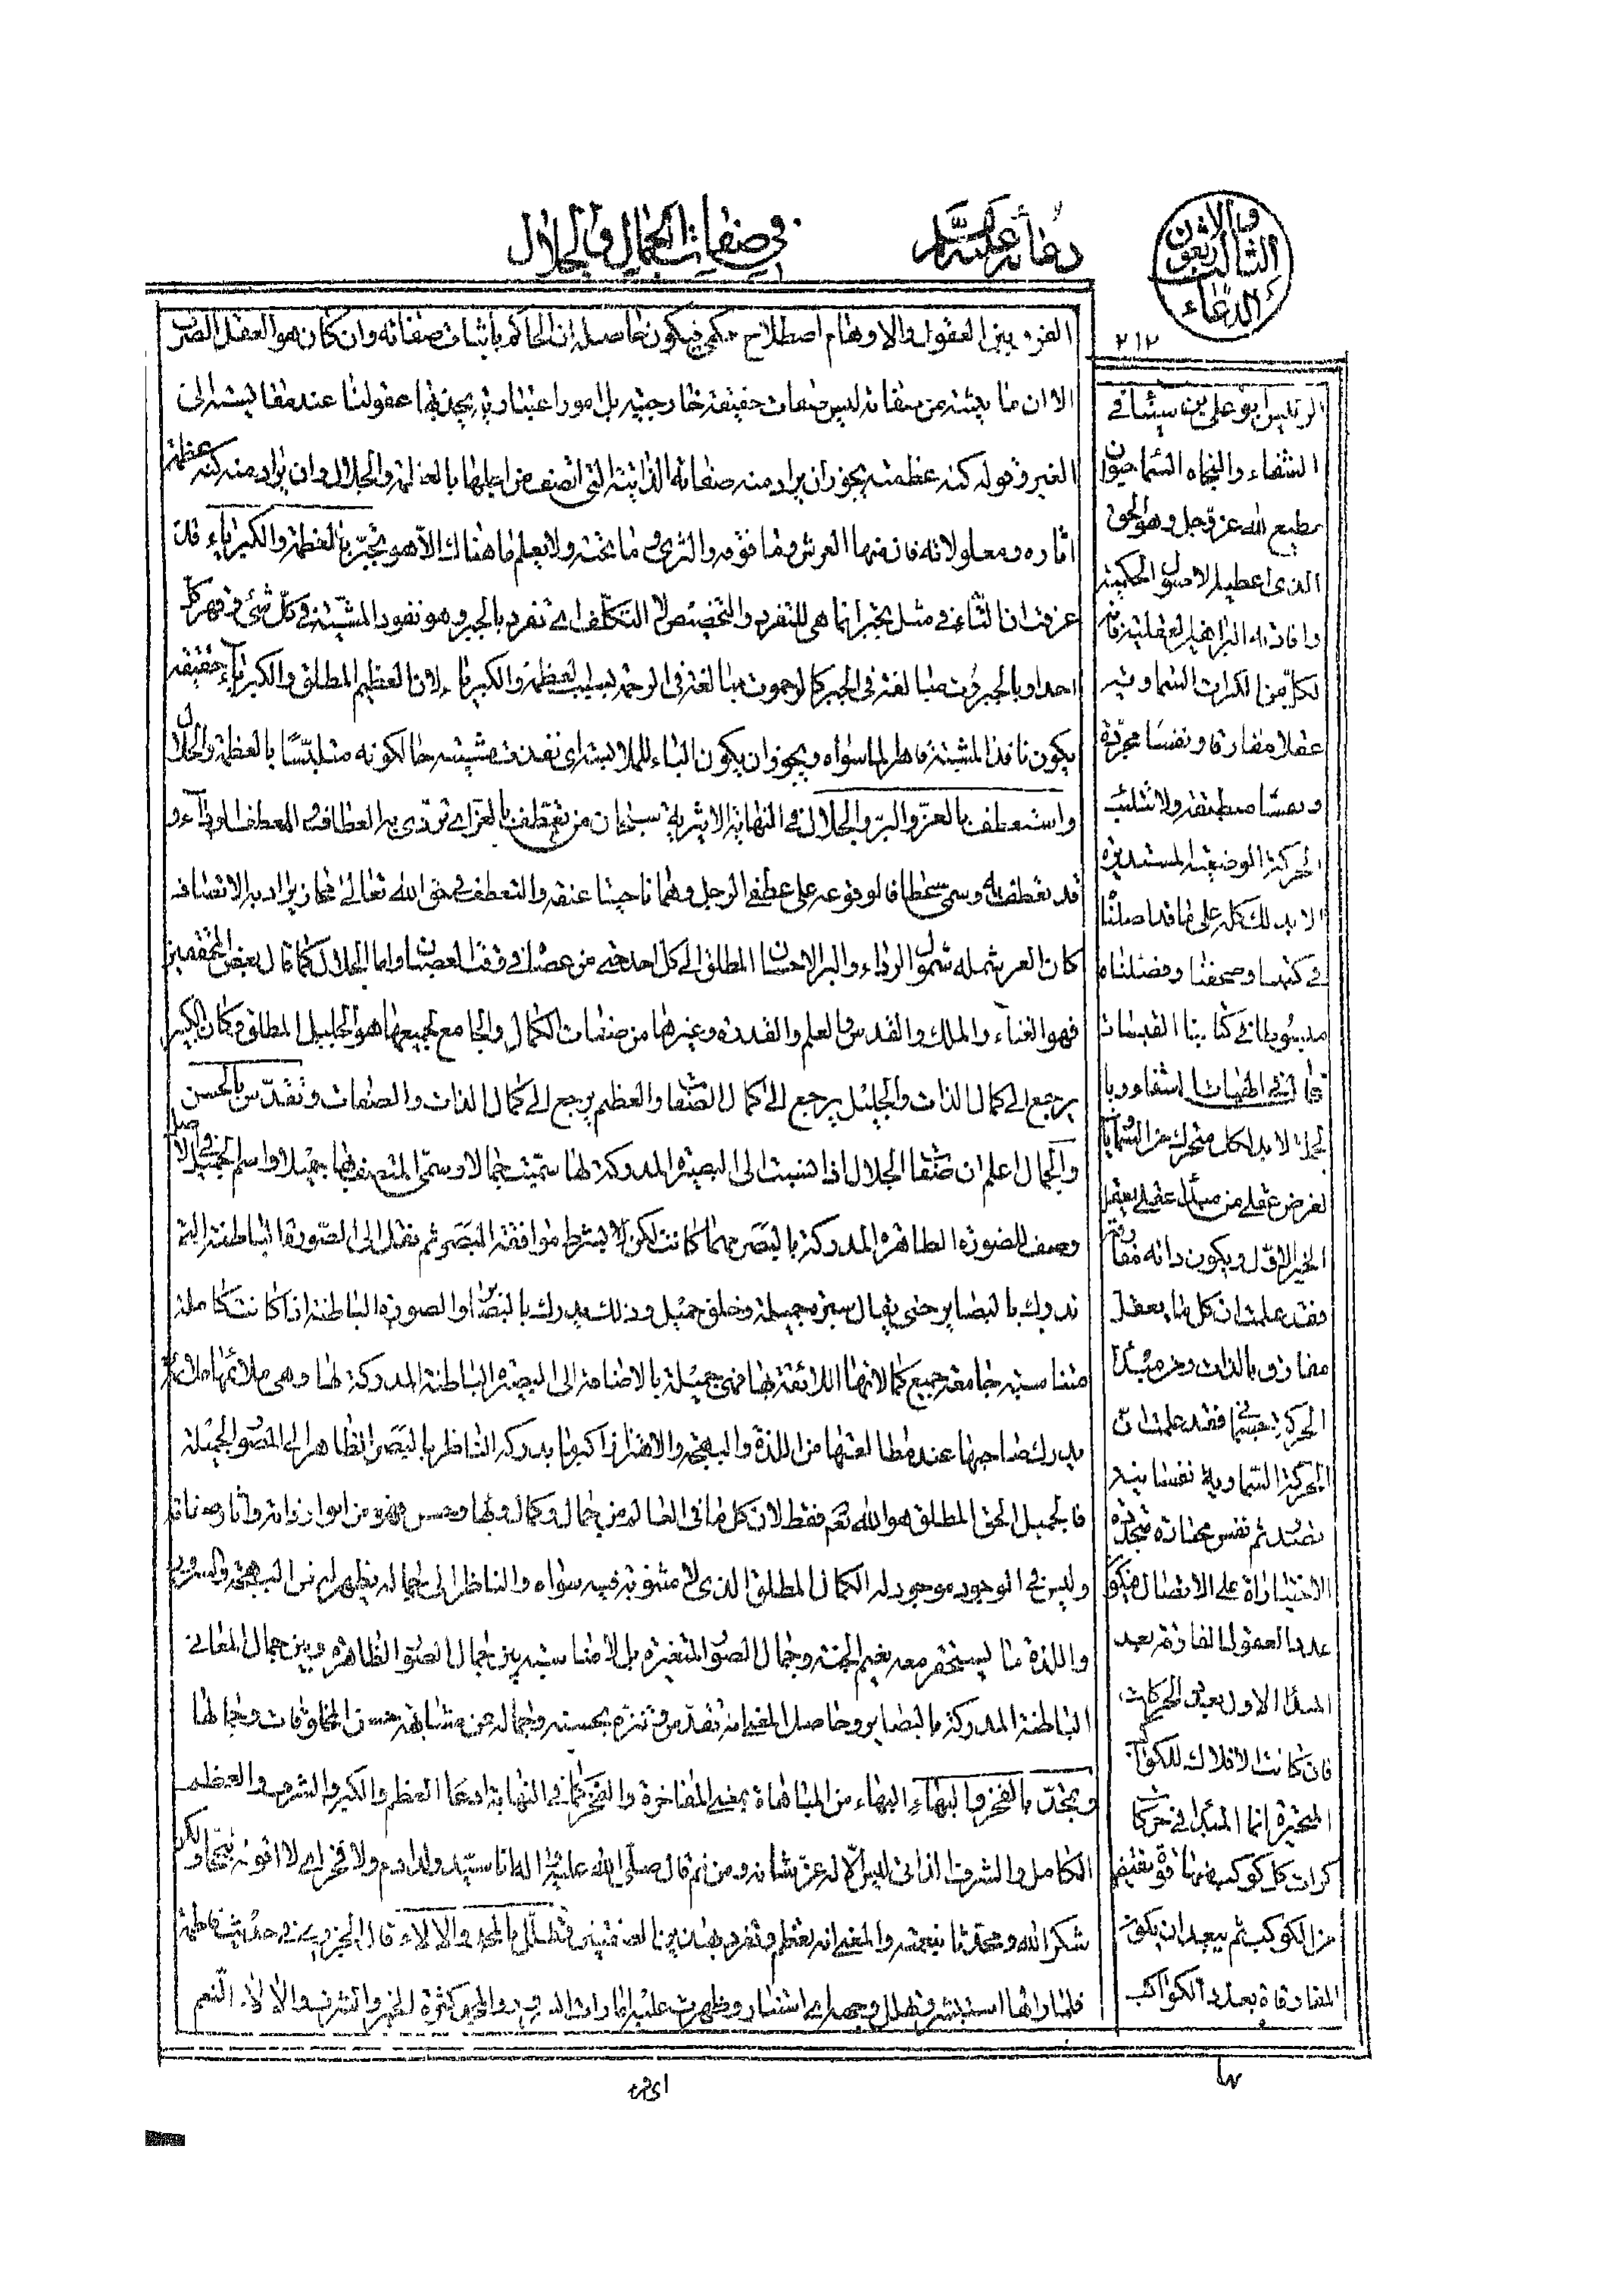 الدعاء الثالث والاربعون
دعائه عليه السلام
في صفات الجمال والجلال
٢١٢
الفرق بين العقول والاوهام اصطلاح حكمي فيكون حاصله ان الحاكم باثبات صفاته وان كان هو العقل الصرف
الا ان ما يثبته من صفاته ليس صفات حقيقة خارجية بل امور اعتبارية يحدثها عقولنا عند مقايسته الى
الغير وقوله كنه عظمته يجوز ان يراد منه صفاته الذاتية التي اتصف من اجلها بالعظمة والجلال وان يراد منه كنه عظمة
اثاره ومعلولاته فان منها العرش وما فوقه والثرى وما تحته ولا يعلم ما هناك الا هو تجبر بالعظمة والكبرياء قد
عرفت ان التاء في مثل تجبر انما هي للتفرد والتخصيص لا التكلف اي تفرد بالجبر وهو نفوذ المشية في كل شيء وقهر كل
احد او بالجبروت مبالغة في الجبر كالرحموت مبالغة في الرحمة بسبب العظمة والكبرياء لان العظيم المطلق والكبرياء حقيقة
يكون نافذ المشية قاهرا لما سواه ويجوز ان يكون الباء للملابسة اي نفذت مشيته حالكونه متلبسا بالعظمة والجلال
واستعطف بالعز والبر والجلال في النهاية الاثيرية سبحان من تعطف بالعز اي تردى به العطاف والمعطف الرداء و
قد تعطف به وسمي عطافا لوقوعه على عطفي الرجل وهما ناحيتا عنقه والتعطف في حق الله تعالى مجاز يراد به الاتصاف
كان العز شمله شمول الرداء والبر الاحسان المطلق الى كل احد حتى من عصاه في وقت العصيان واما الجلال كما قال بعض المحققين
فهو الغناء والملك والقدس والعلم والقدرة وغيرها من صفات الكمال والجامع لجميعها هو الجليل المطلق وكان الكبير
يرجع الى كمال الذات والجليل يرجع الى كمال الصفات والعظيم يرجع الى كمال الذات والصفات وتقدس بالحسن
والجمال اعلم ان صفات الجلال اذا نسبت الى البصيرة المدركة لها سميت جمالا وسمي المتصف بها جميلا واسم الجميل في الاصل
وصف للصورة الظاهرة المدركة بالبصر مهما كانت لكن لا بشرط موافقة البصر ثم نقل الى الصورة الباطنة التي
تدرك بالبصاير حتى يقال سيرة جميلة وخلق جميل وذلك يدرك بالبصائر والصورة الباطنة اذا كانت كاملة
متناسبة جامعة جميع كمالاتها اللائقة بها فهي جميلة بالاضافة الى البصيرة الباطنة المدركة لها وهي ملائمة لها ملائمة
يدرك صاحبها عند مطالعتها من اللذة والبهجة والاهتزاز اكثر مما يدركه الناظر بالبصر الظاهر الى الصور الجميلة
فالجميل الحق المطلق هو الله تعالى فقط لان كل ما في العالم من جمال وكمال وبهاء وحسن فهو من انوار ذاته واثار صفاته
وليس في الوجود موجود له الكمال المطلق الذي لا مثنوية فيه سواه والناظر الى جماله يظهر له من البهجة والسرور
واللذة ما يستحقر معه نعيم الجنة وجمال الصور المتغيرة بل لا مناسبة بين جمال الصور الظاهرة وبين جمال المعاني
الباطنة المدركة بالبصاير وحاصل المعنى انه تقدس وتنزه بحسنه وجماله عن مشابهة حسن المخلوقات وجمالها
وتمجد بالفخر والبهاء البهاء من المباهاة بمعنى المفاخرة والفخر كما في النهاية ادعاء العظم والكبر والشرف والعظمة
الكامل والشرف الذاتي ليس الا له عز شانه ومن ثم قال صلى الله عليه واله انا سيد ولد ادم ولا فخر اي لا اقوله تبجحا ولكن
شكر الله وتحدثا بنعمته والمعنى انه تعظم وتفرد بهاتين الصفتين وتهلل بالمجد والالاء قال الجزري في حديث فاطمة
فلما راها استبشر وتهلل وجهه اي استنار وظهرت عليه امارات السرور والمجد كثرة الخير والشرف والالاء النعم
الرئيس ابو علي بن سينا في
الشفاء والنجاة السماء حيوان
مطيع لله عز وجل وهو الحق
الذي اعطيه الاصول الحكمية
وافادته البراهين العقلية فان
لكل من الكرات السماوية
عقلا مفارقا ونفسا مجردة
ونفسا منطبعة ولا تثليث
الحركة الوضعية المستديرة
الا بذلك كله على ما قد اصلناه
في كتبنا وصحفنا وفصلناه
مبسوطا في كتابنا القبسات
قال في الهيات الشفاء وبا
لجملة لا بد لكل متحرك من السماويات
لغرض عقلي من مبدأ عقلي يعقل
الخير الاول ويكون ذاته مفارقة
فقد علمت ان كل ما يعقل
مفارق بالذات ومن مبدأ
الحركة نفسها فقد علمت ان
الحركة السماوية نفسانية
تصدر عن نفس مختارة متجددة
الاختيارات على الاتصال فيكون
عدد العقول المفارقة بعد
المبدأ الاول بعدد الحركات
فان كانت الافلاك للكواكب
المتحيرة انما المبدأ في حركات
كرات كل كوكب فيها قوة تفيض
من الكوكب لم يبعد ان يكون
المفارقات بعدد الكواكب
ای تجرد
لها